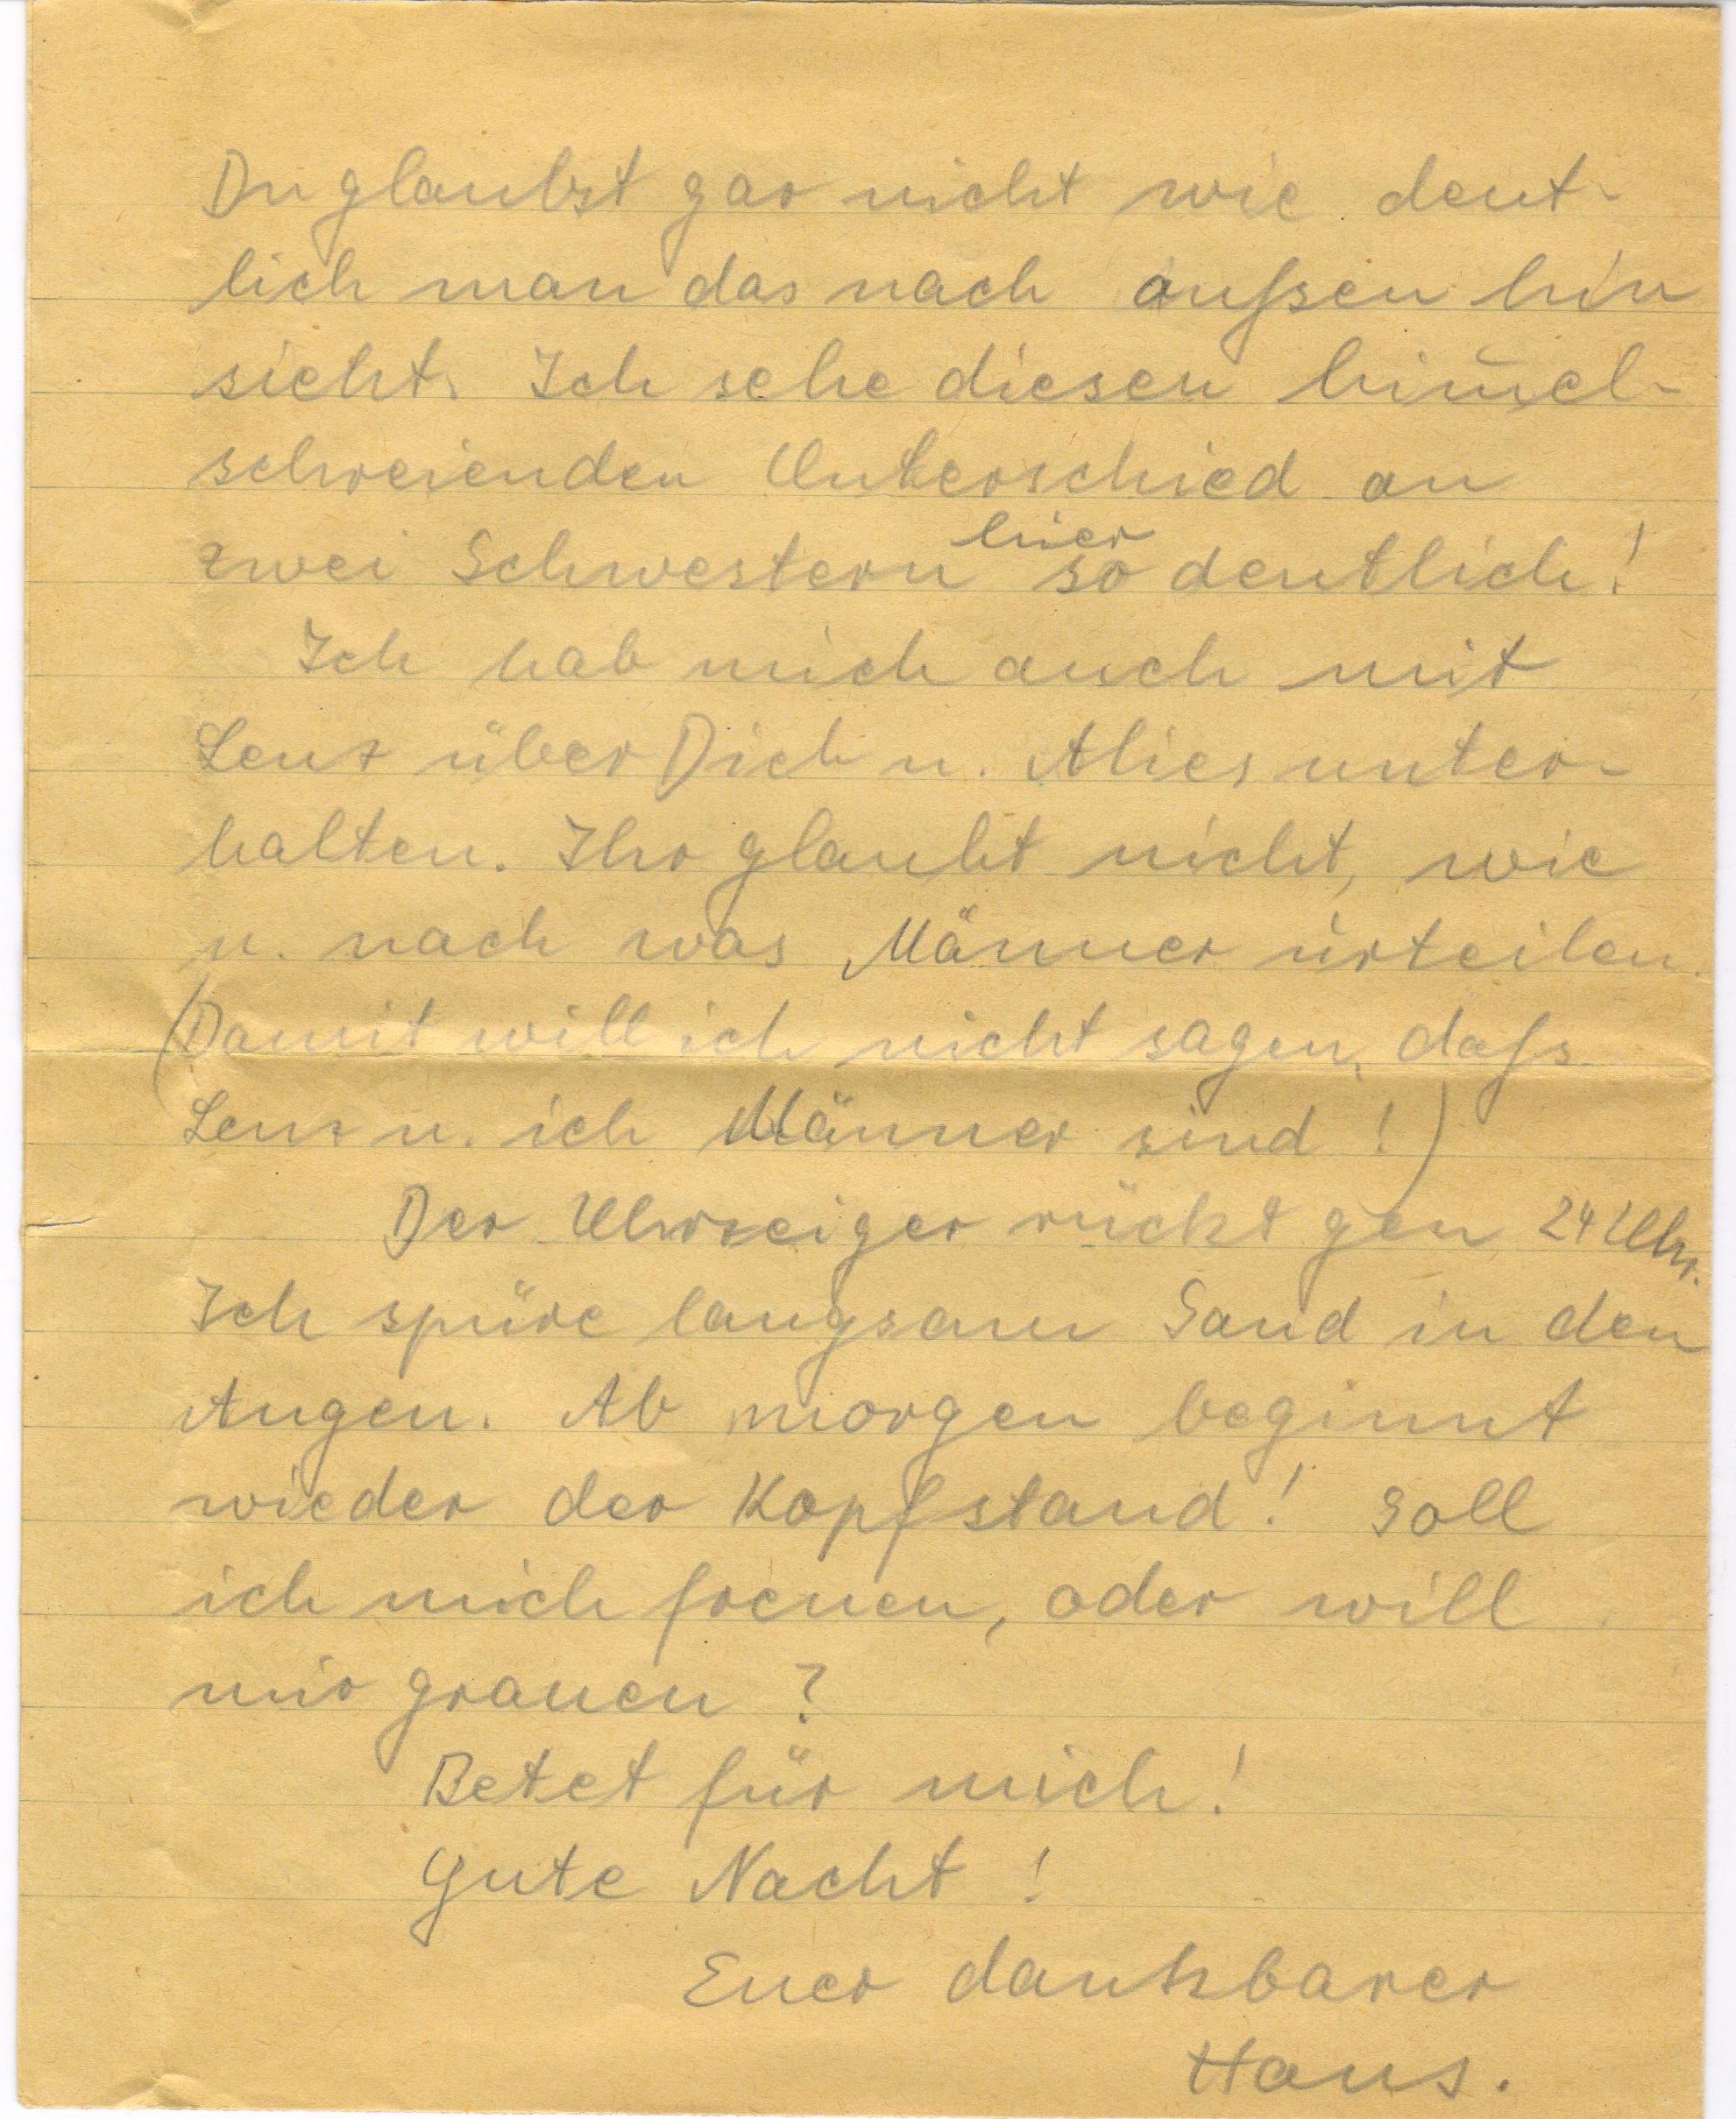 Du glaubst gar nicht wie deut-
lich man das nach aussen hin
sieht. Ich sehe diesen him̄el-
schreienden Unterschied an
zwei Schwestern hier so deutlich!
Ich hab mich auch mit
Lenz über Dich u. Alies unter-
halten. Ihr glaubt nicht, wie
u. nach was Männer urteilen.
(Damit will ich nicht sagen, dass
Lenz u. ich Männer sind!)
Der Uhrzeiger rückt gen 24 Uhr.
Ich spüre langsam Sand in den
Augen. Ab morgen beginnt
wieder der Kopfstand! Soll
ich mich freuen, oder will
mir grauen?
Betet für mich!
Gute Nacht!
Euer dankbarer
Hans.